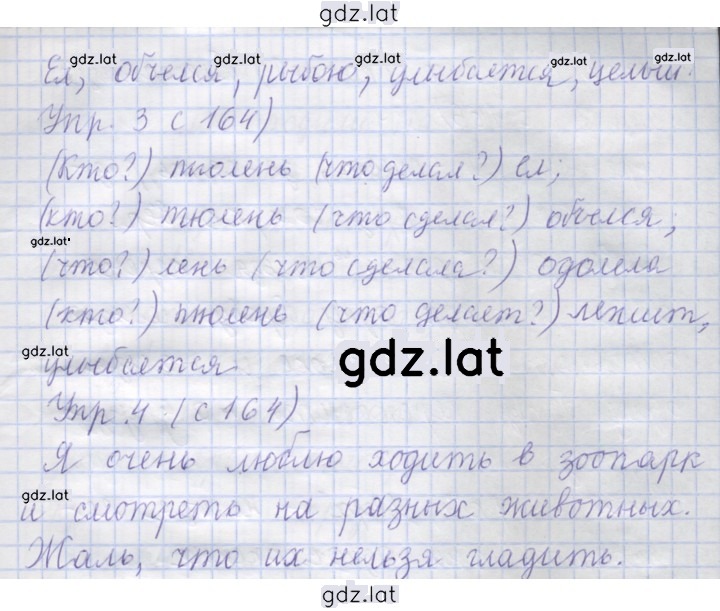 gdz.lat
gdz.lat gdz.lat gdz.lat
Ел, объелся, рыбою, улыбается, целый.
Упр. 3 с 164)
(Кто?) тюлень (что делал?) ел;
(кто?) тюлень (что сделал?) объелся;
gdz.lat
(что?) лень (что сделала?) одолела
(кто?) тюлень (что делает?) лежит,
gdz.lat
улыбается
gdz.lat
Упр. 4 (с 164)
Я очень люблю ходить в зоопарк
gdz.lat
и смотреть на разных животных.
Жаль, что их нельзя гладить.
gdz.lat